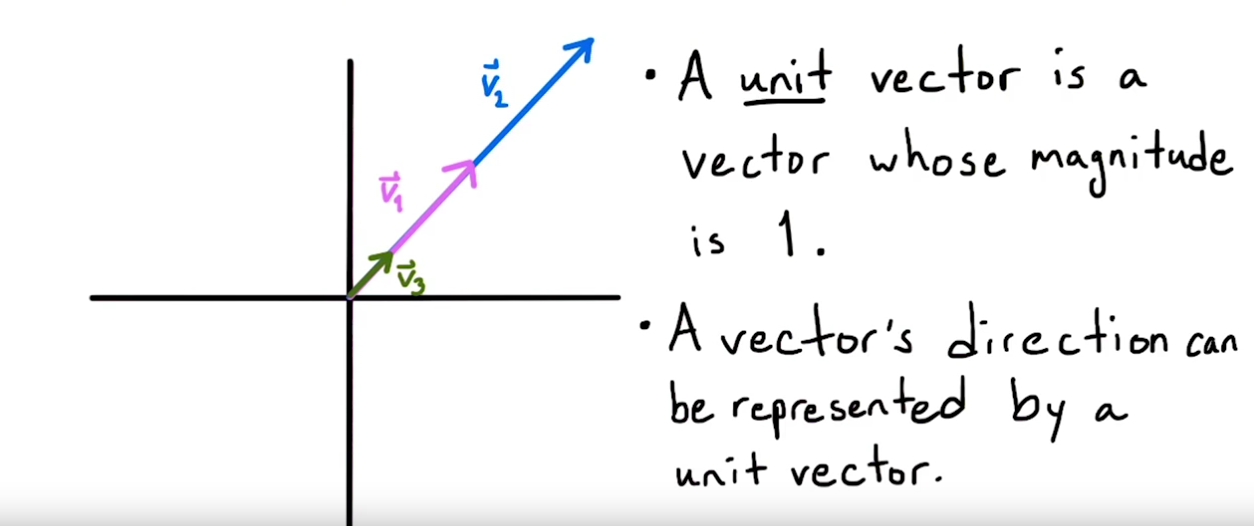 v⃗₂
v⃗₁
v⃗₃
• A unit vector is a
vector whose magnitude
is 1.
• A vector's direction can
be represented by a
unit vector.